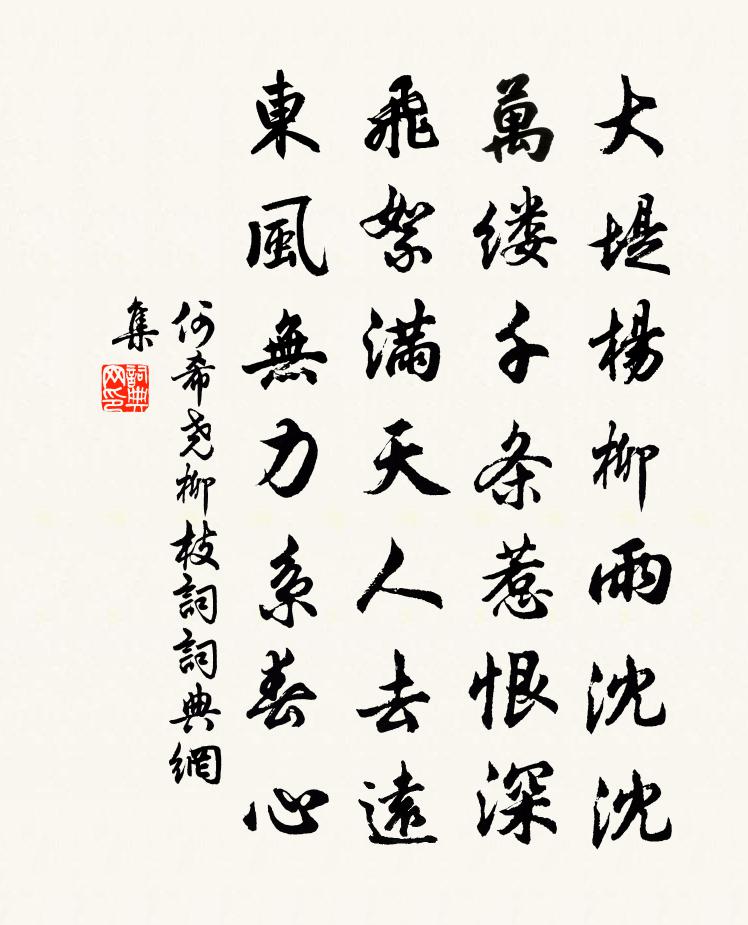 大堤楊柳雨沈沈
萬缕千条惹恨深
飛絮滿天人去遠
東風無力系春心
何希尧柳枝詞詞典網
集
詞典
网印